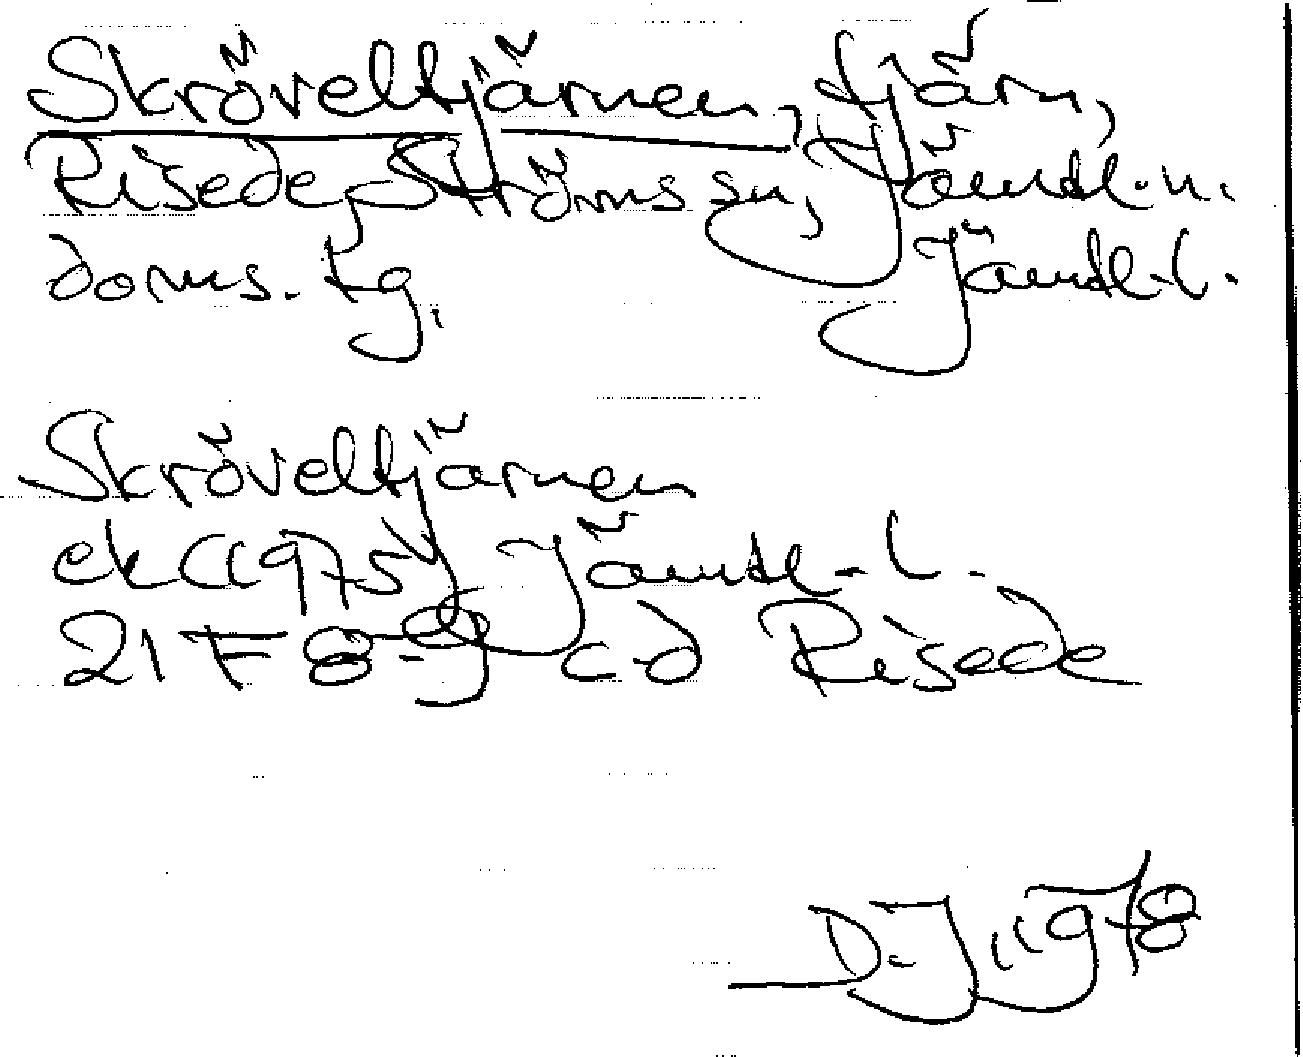 Skröveltjärnen, tjärn,
Risede, Ströms sn, Jämtl. n.
doms. tg, Jämtl. l.
Skröveltjärnen
ek (1975) Jämtl. l.
21 F 8-9 c-d Risede
D.J. 1978